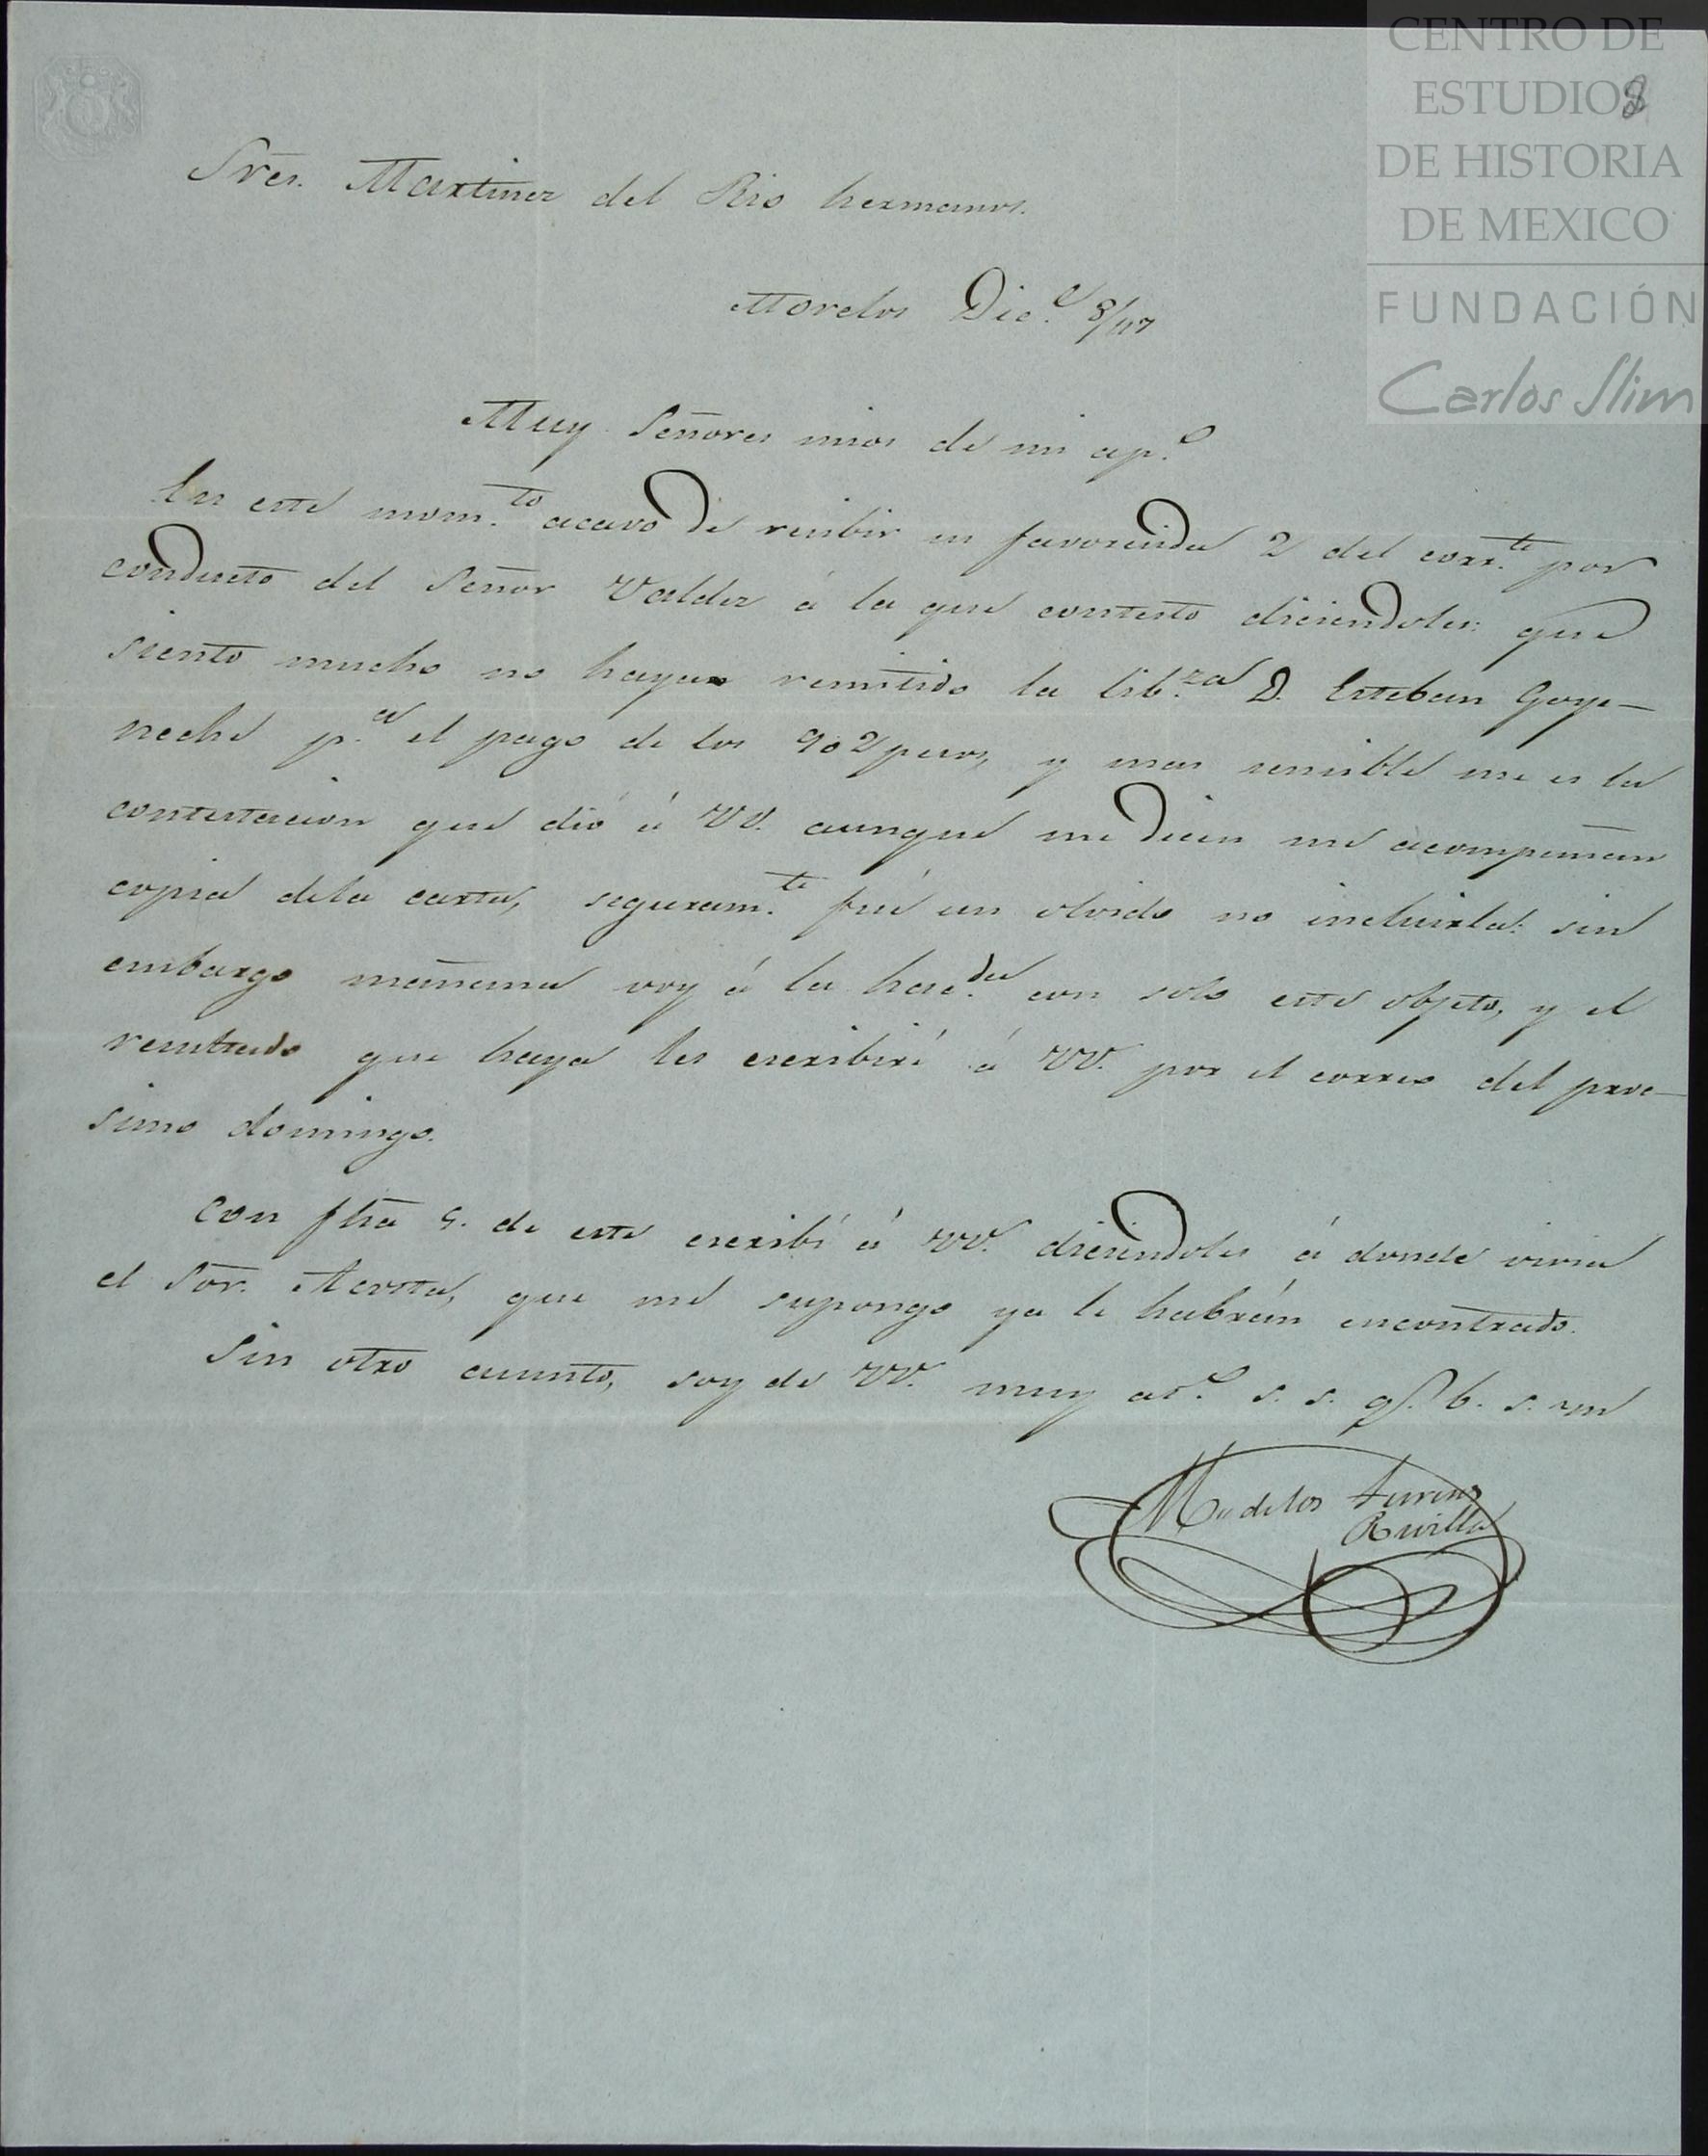 CENTRO DE
ESTUDIOS
DE HISTORIA
DE MEXICO
FUNDACIÓN
Carlos Slim
Sres. Martinez del Rio hermanos.
Morelos Dic.e 8/47
Muy Señores mios de mi ap.o
En este mom.to acavo de recibir su favorecida 2 del corr.te por
conducto del Señor Valdez á la que contesto diciendoles: que
siento mucho no hayan remitido la lib.za D. Esteban Goye-
neche p.a el pago de los 902 pesos, y mas sensible me es la
contestacion que dió á VV. aunque me dicen me acompañan
copia dela carta, seguram.te fué un olvido no incluirla: sin
embargo mañana voy á la hac.da con solo este objeto, y el
resultado que haya les escribiré á VV. por el correo del proc-
simo domingo.
Con fha 5. de este escribí á VV. diciendoles á donde vivia
el Sor. Acosta, que me supongo ya le habrán encontrado.
Sin otro asunto, soy de VV. muy at.o s. s. q. b. s. m
M. de los
Revilla